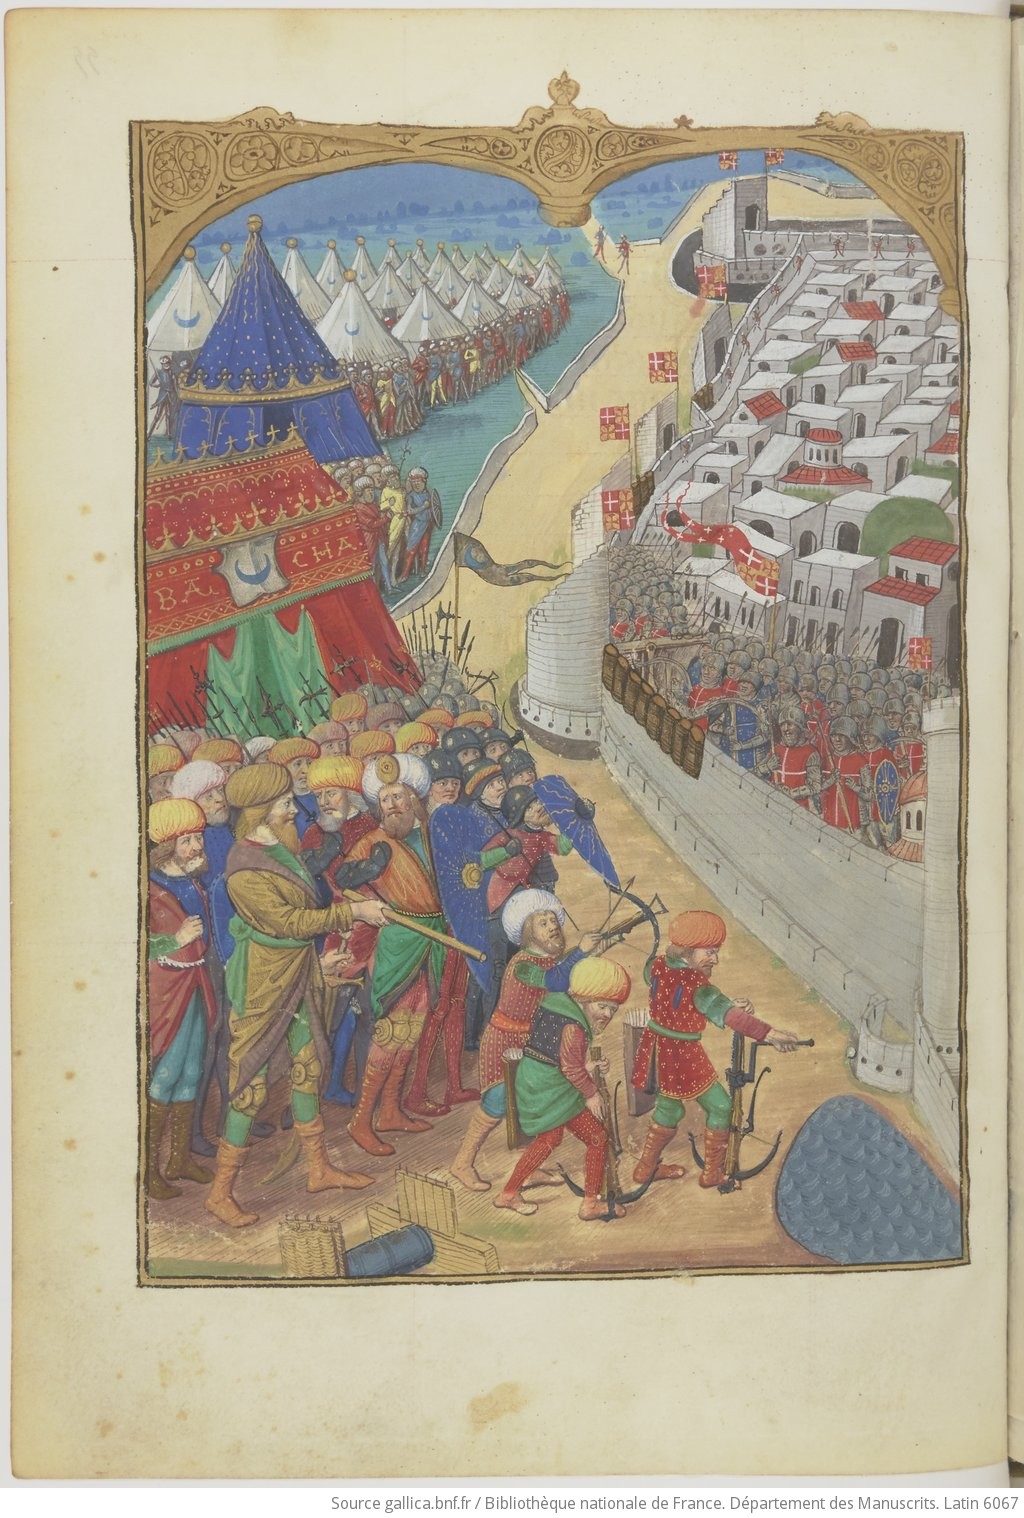 BA CHA
Source gallica.bnf.fr / Bibliothèque nationale de France. Département des Manuscrits. Latin 6067